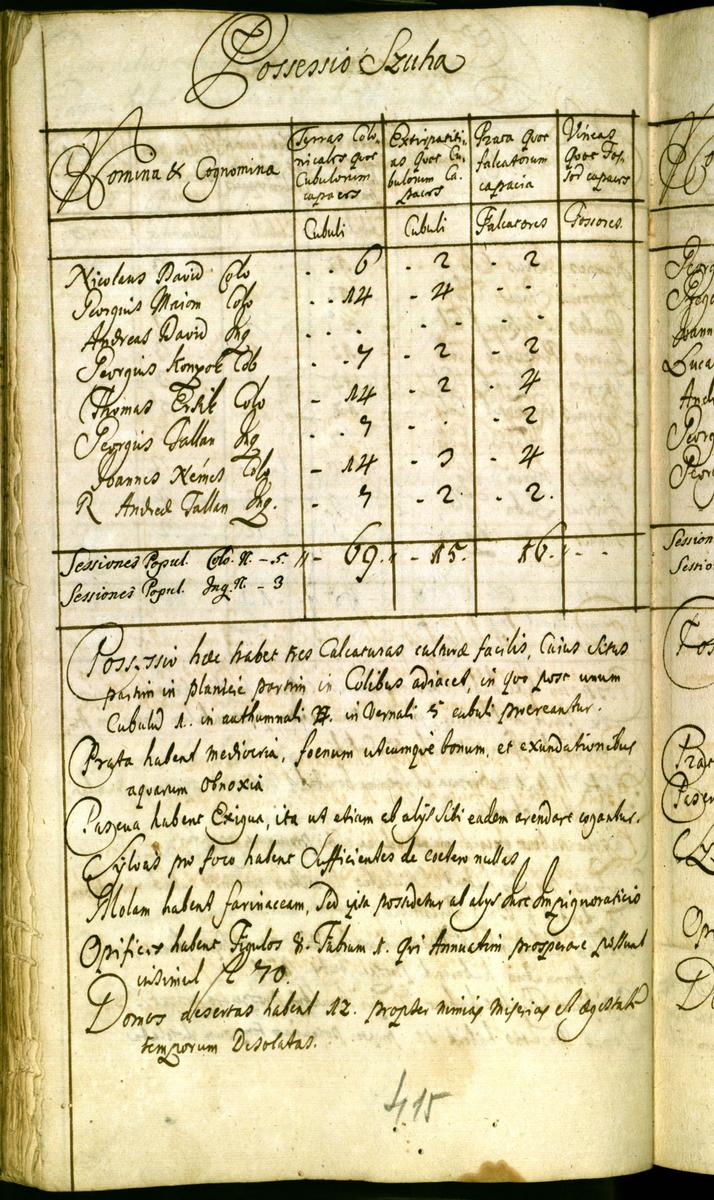 Possessio Szuha
Nomina & Cognomina
Terras Colo-
nicales quot
Cubulorum
capaces
Extirpatiti-
as quot Cu-
bulorum Ca-
paces
Prata quot
falcatorum
capacia
Vineas
quot Fos-
sor capaces
Cubuli Cubuli Falcatores Fossores
Nicolaus David Colo - - 6 - 2 - 2
Georgius Maiom Colo - - 14 - 4 - -
Andreas David Inq - - - - - -
Georgius Konyok Colo - - 7 - 2 - 2
Thomas Colo - 14 - 2 - 4
Georgius Fallan Inq - - 7 - - - 2
Joannes Némes Colo - 14 - 3 - 4
R Andreæ Fallan Inq. - 7 - 2 - 2
Sessiones Popul. Colo. N. - 5. - 69. - 15. 16. - -
Sessiones Popul. Inq. N. - 3
Possessio hæc habet tres Calcaturas culturæ facilis, Cuius situs
partim in planitie partim in Colibus adiacet, in quo post unum
Cubulū 1. in authumnali 4. in Vernali 5 cubuli procreantur.
Prata habent mediocria, foenum utcumque bonum, et exundationibus
aquarum obnoxia
Pascua habent Exigua, ita ut etiam ab alijs sibi eadem arendare cogantur.
Sylvas pro foco habent sufficientes de coetero nullas
Molam habent farinaceam, sed ipsa possidetur ab alijs Jure Impignoraticio
Opifices habent Figulos 8. Fabrum 1. qui Annuatim prosperare possunt
insimul fl 70.
Domos desertas habent 12. propter nimias miserias et ægestatē
temporum Desolatas.
415